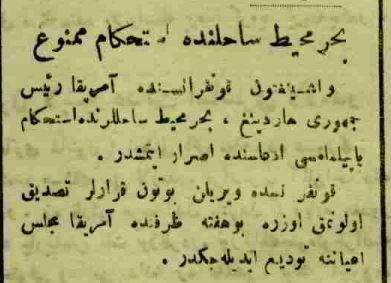 بحر محیط ساحلنده استحکام ممنوع
واشینغتون قونفرانسنده آمریقا رئیس
جمهوری هاردینغ ، بحر محیط ساحللرنده استحکام
یاپیلمامسی ادعاسنده اصرار ایتمشدر .
قونفرنسده ویریلن بوتون قرارلر تصدیق
اولونمق اوزره بوهفته ظرفنده آمریقا مجلس
اعیاننه تودیع ایدیله‌جکدر .